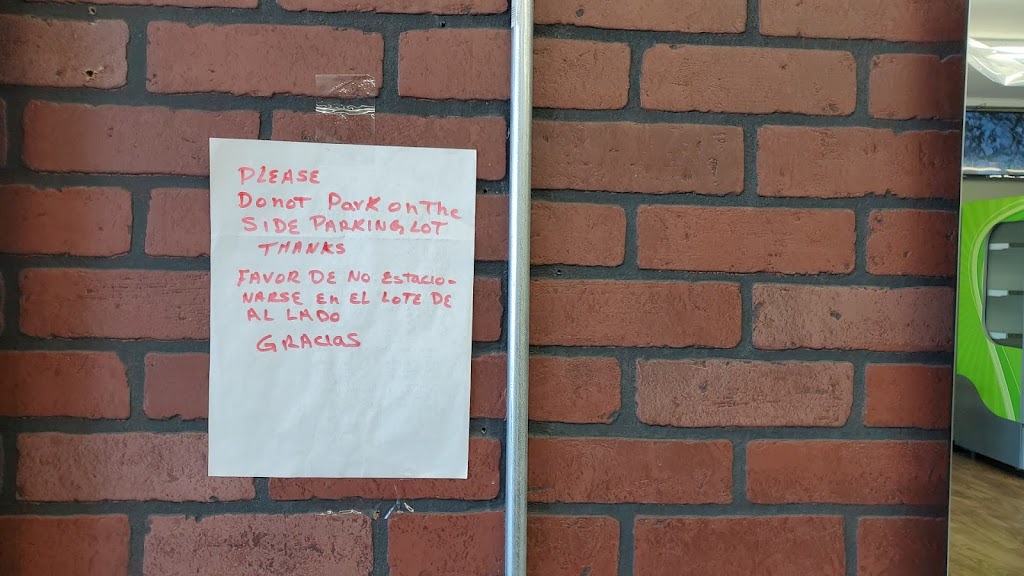 PLEASE
Do not Park on The
SIDE PARKING LOT
THANKS
FAVOR DE NO ESTACIO-
NARSE EN EL LOTE DE
AL LADO
GRACIAS